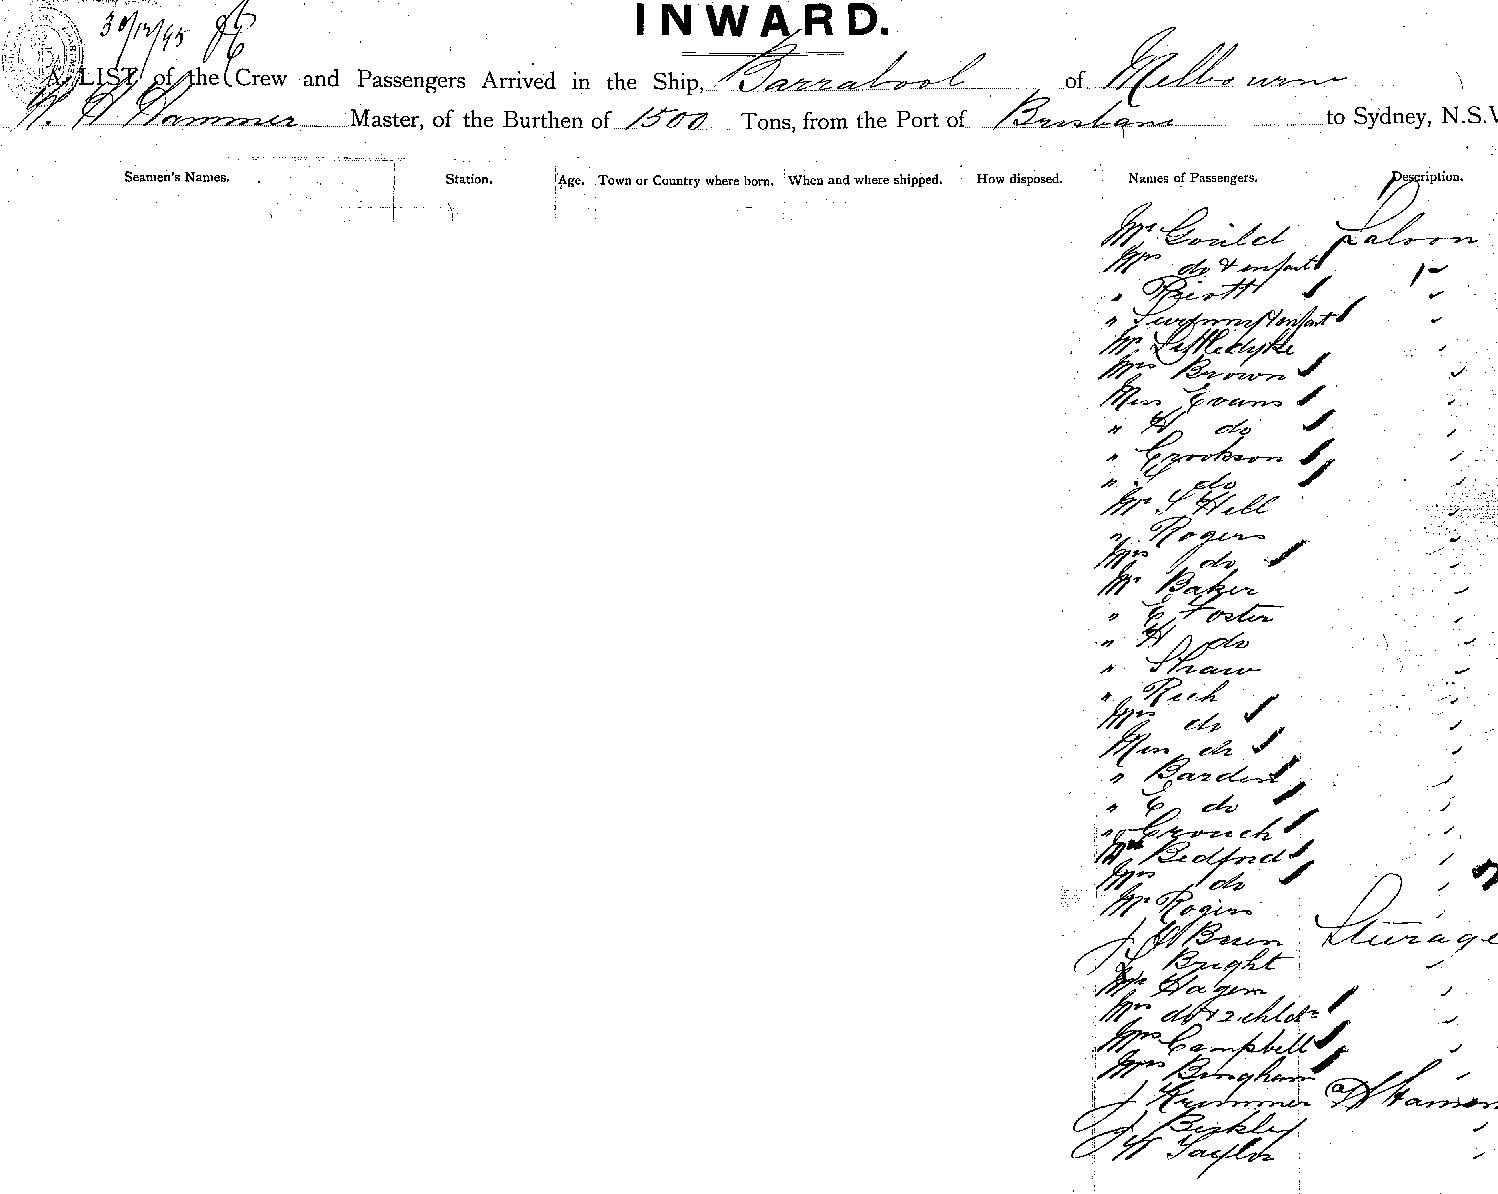 30/12/95
INWARD.
A LIST of the Crew and Passengers Arrived in the Ship, Barrabool of Melbourne
Master, of the Burthen of 1500 Tons, from the Port of Brisbane to Sydney, N.S.W
Seamen's Names. Station. Age. Town or Country where born. When and where shipped. How disposed. Names of Passengers. Description.
Mr Gould Saloon
Mrs do & infant
" Priott
" & infant
Mr Littledyke
Mrs Brown
Miss Evans
" H do
" Crookson
" do
Mr S Hill
" Rogers
Mrs do
Mr Baker
" E Foster
" H do
" Shaw
" Rich
Mrs do
Miss do
" Barden
" E do
" Crouch
Mr Bedford
Mrs do
Mr Rogers
J Steerage
Bright
Mr Hagen
Mrs do & 2 chldn
Mrs Campbell
Mrs Bingham
J Krummer
J
W Taylor